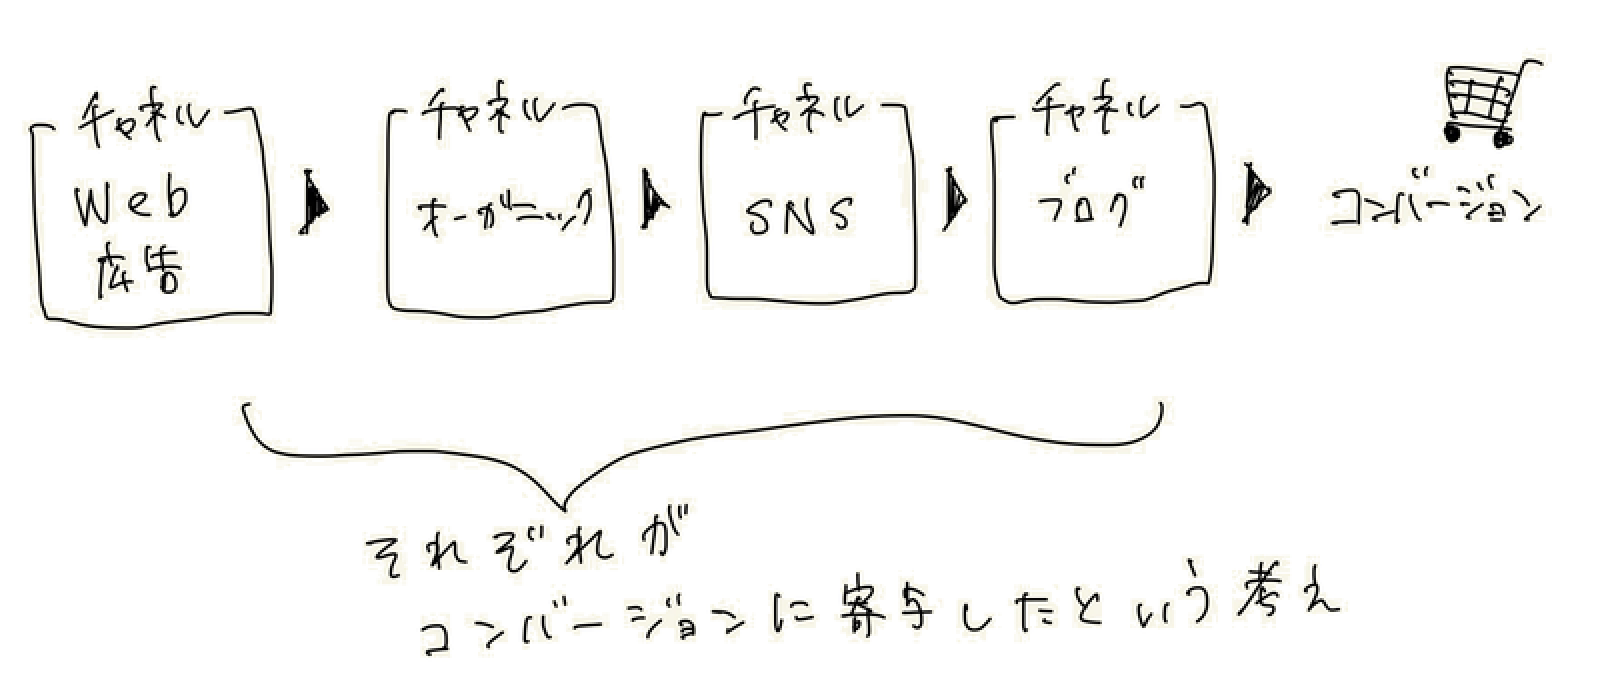 チャネル
Web
広告
チャネル
オーガニック
チャネル
SNS
チャネル
ブログ
コンバージョン
それぞれが
コンバージョンに寄与したという考え